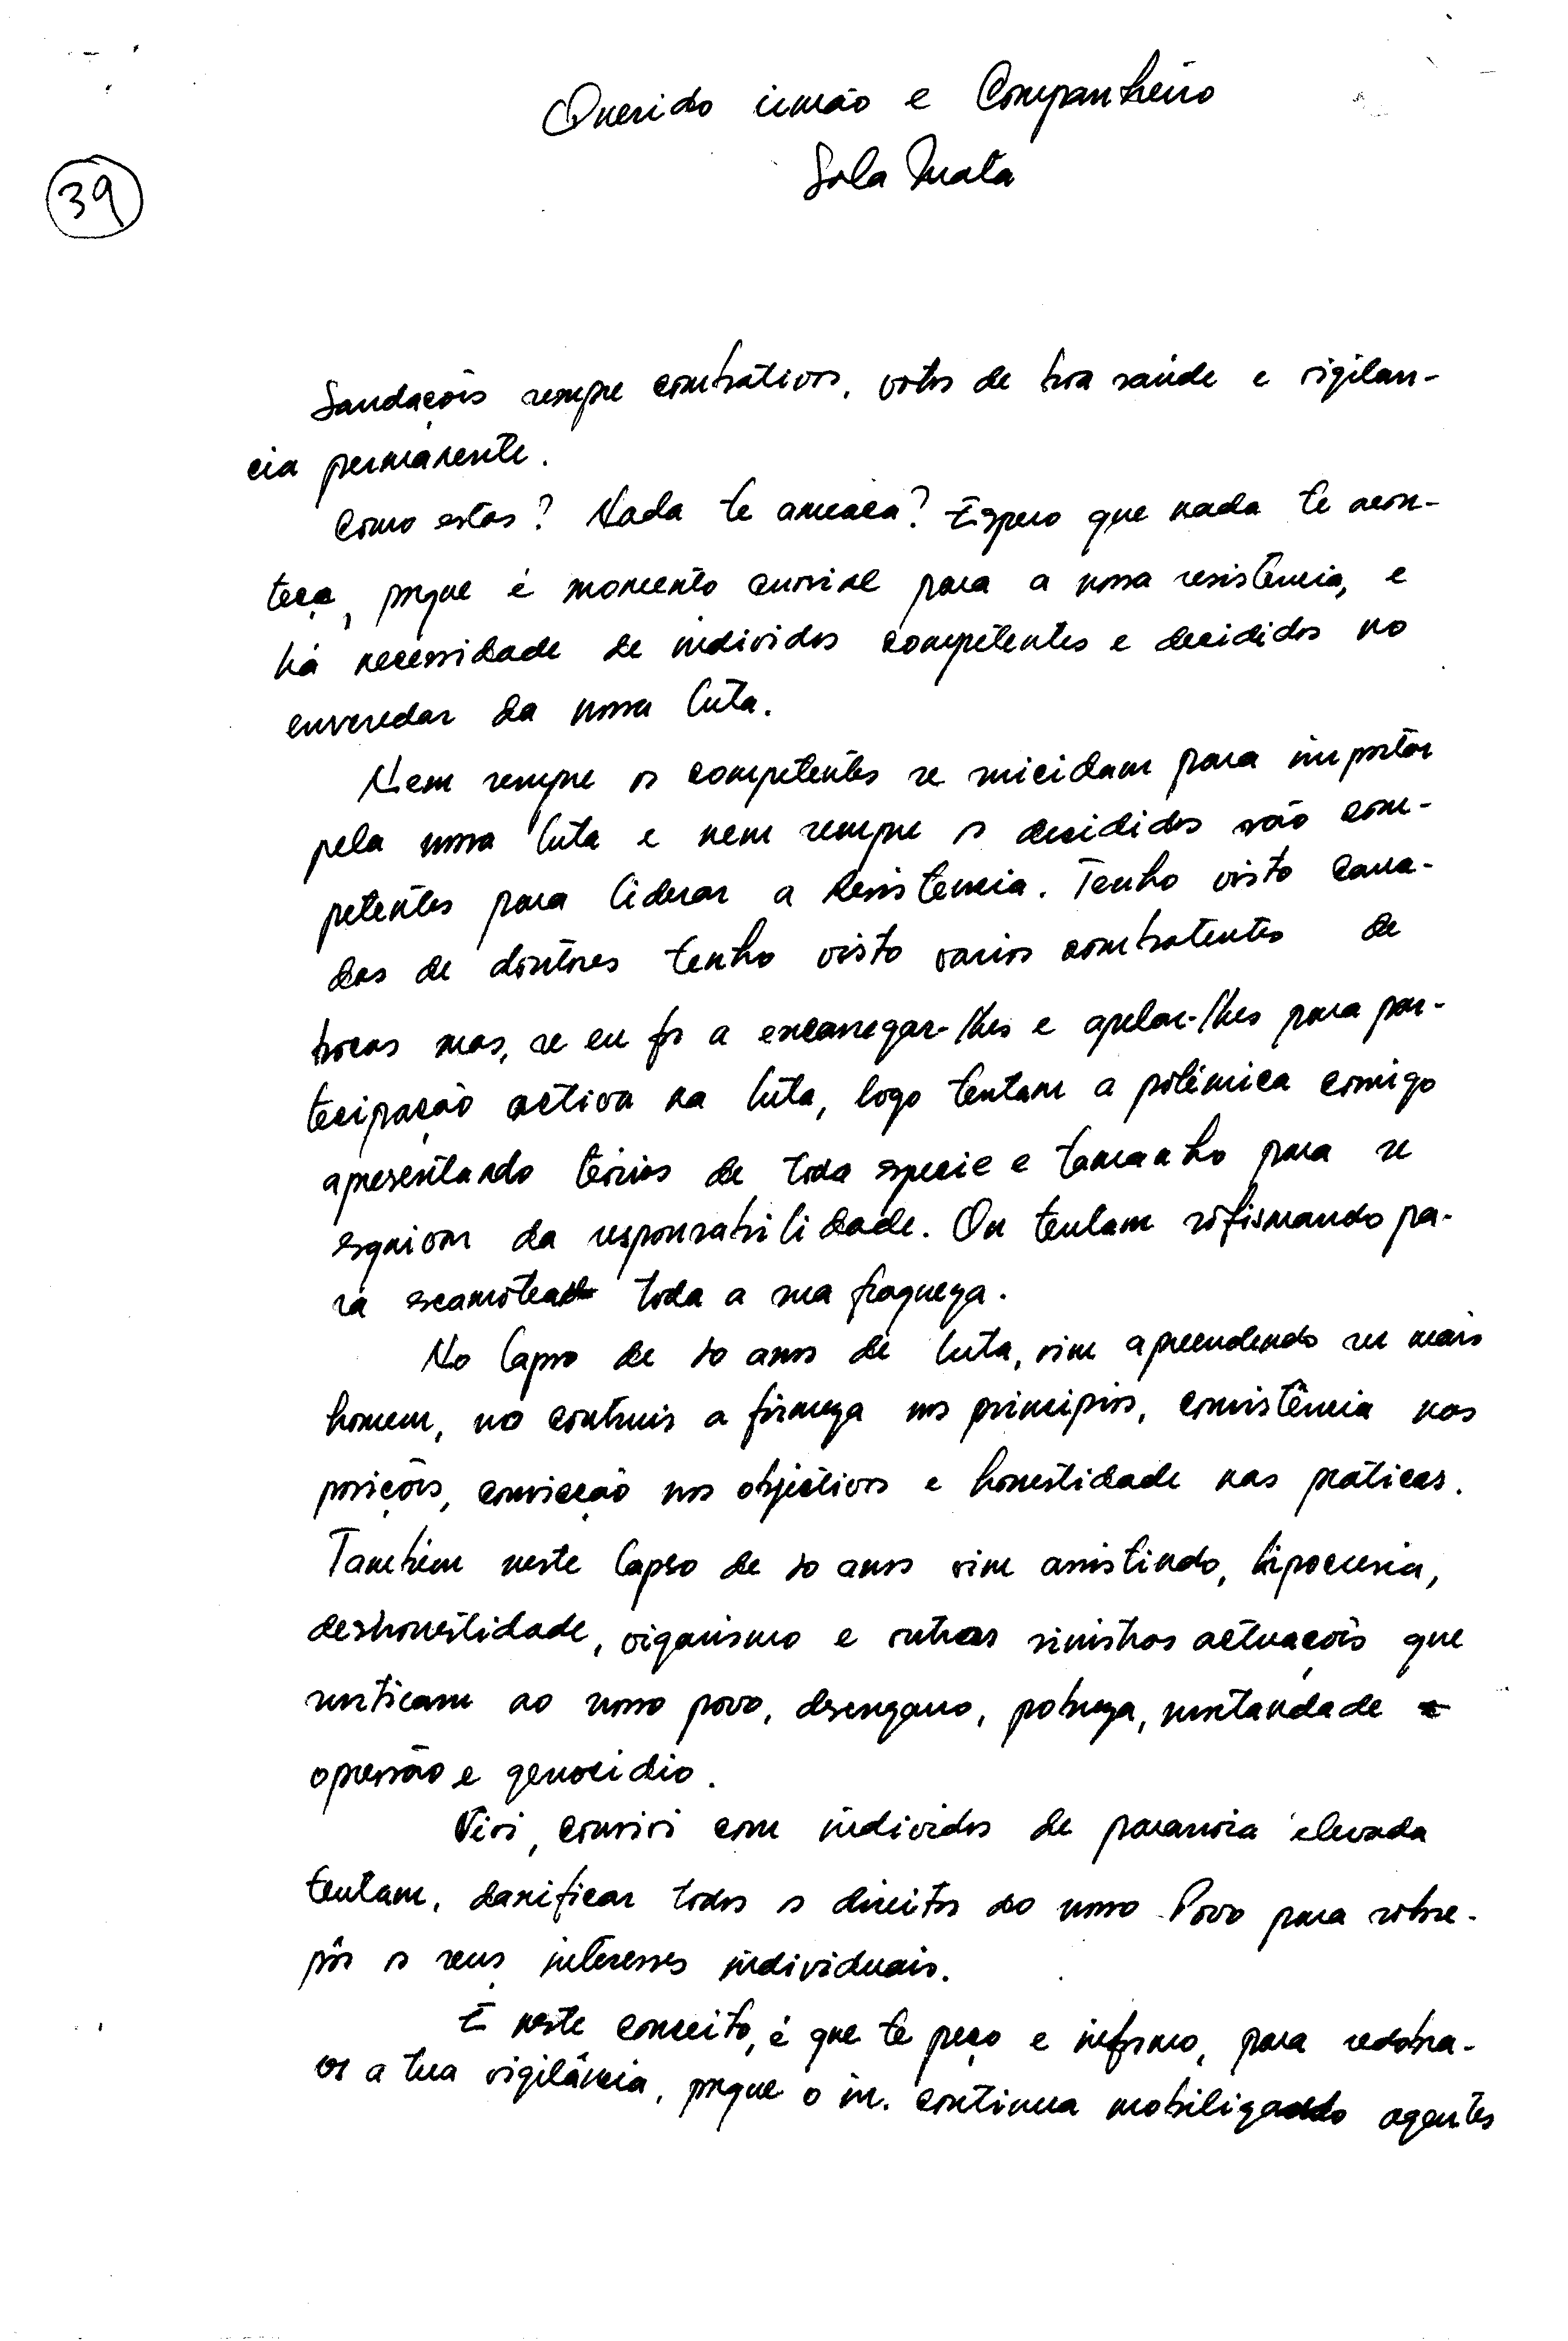 Querido irmão e Companheiro
Sola Mata
39
Saudaçõis sempre combativos, votos de boa saúde e vigilan-
cia permanente.
Como estas? Nada te ameaca? Espero que nada te acon-
teça, porque é momento para a nossa resistência, e
há necessidade de individos competentes e decididos no
enveredar da nossa luta.
Nem sempre os competentes se suicidam para importar
pela nossa luta e nem sempre os decididos são com-
petentes para liderar a Resistencia. Tenho visto cama-
das de doutores tenho visto varios combatentes de
bocas mas, se eu for a encarregar-lhes e apelar-lhes para par-
tecipação activa na luta, logo tentam a polémica comigo
apresentando teorias de toda especie e tamanho para se
esquivar da responsabilidade. Ou tentam sofismando pa-
ra escamotear toda a sua fraqueza.
No lapso de 10 anos de luta, vim apreendendo ser mais
homem, no construir a firmeza nos principios, consistência nas
posiçõis, convicção nos objectivos e honestidade nas práticas.
Também neste lapso de 10 anos vim assistindo, hipocresia,
deshonestidade, viganismo e outras sinistras actuaçõis que
ao nosso povo, desengano, pobreza,
opressão e genocidio.
Vivi, convivi com individos de paranoia elevada
tentam, danificar todos os direitos do nosso Povo para sobre-
pôr os seus interesses individuais.
É neste conceito, é que te peço e informo, para redobra-
res a tua vigilância, porque o in. continua mobilizando agentes